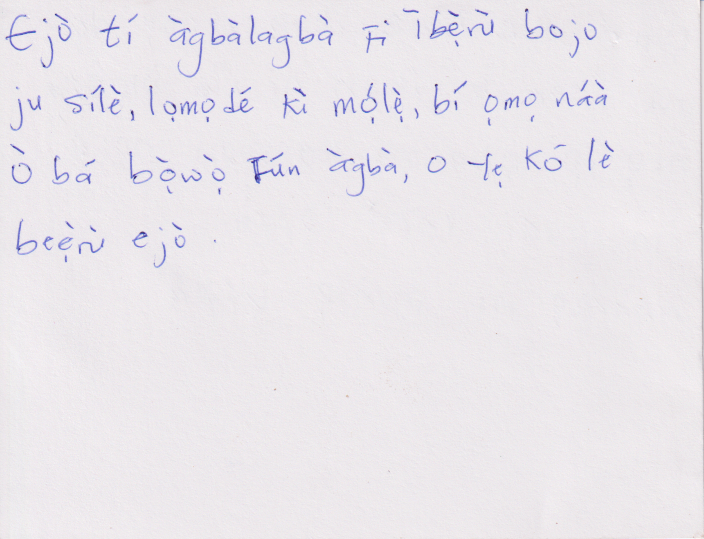 Ejò tí àgbàlagbà fi ìbẹ̀rù bojo
ju sílè, lọmọdé kì mọ́lẹ̀, bí ọmọ náà
Ò bá bọ̀wọ̀ fún àgbà, o tẹ kó lè
beẹ̀rù ejò.